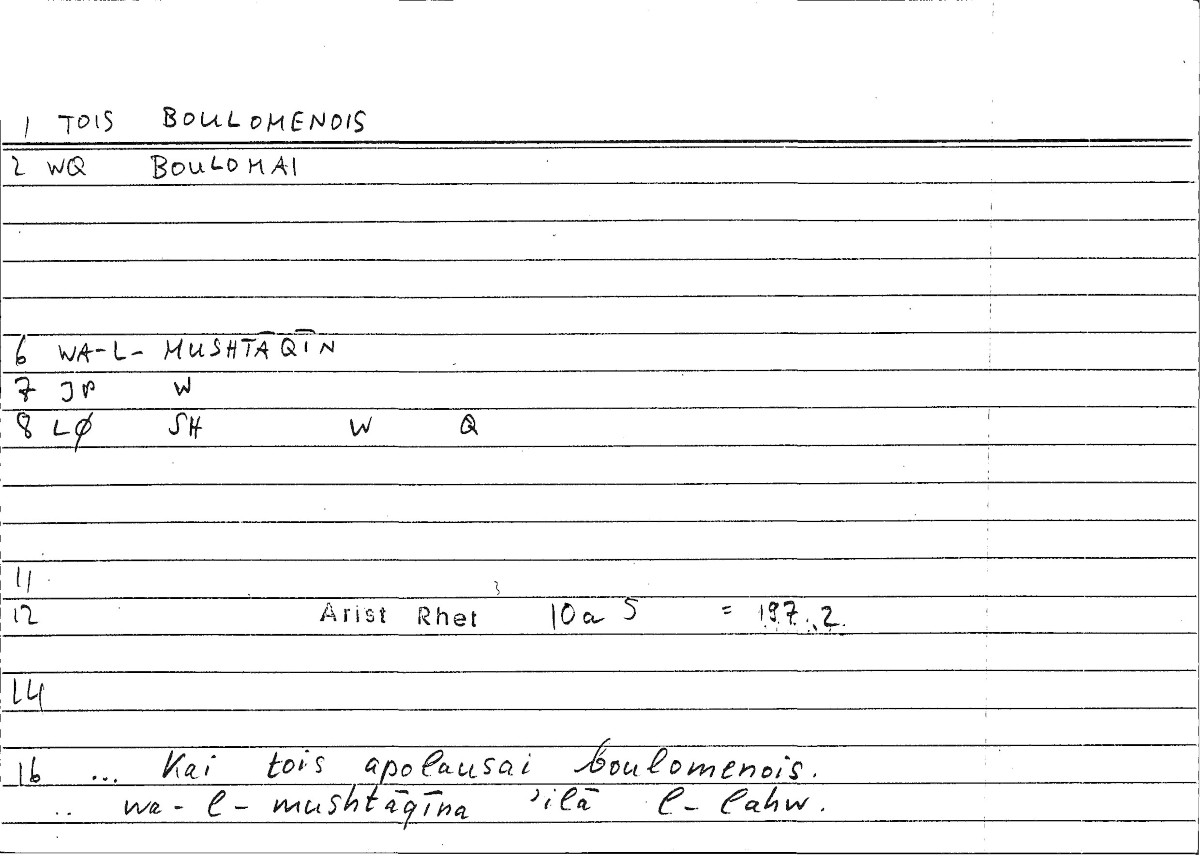 1 TOIS BOULOMENOIS
2 WQ BOULOMAI
6 WA-L- MUSHTĀQĪN
7 JP W
8 LØ SH W Q
11
12 Arist Rhet 10a 5 = 197.2.
14
16 ... Kai tois apolausai boulomenois.
.. wa-l-mushtāqīna 'ilā l-lahw.